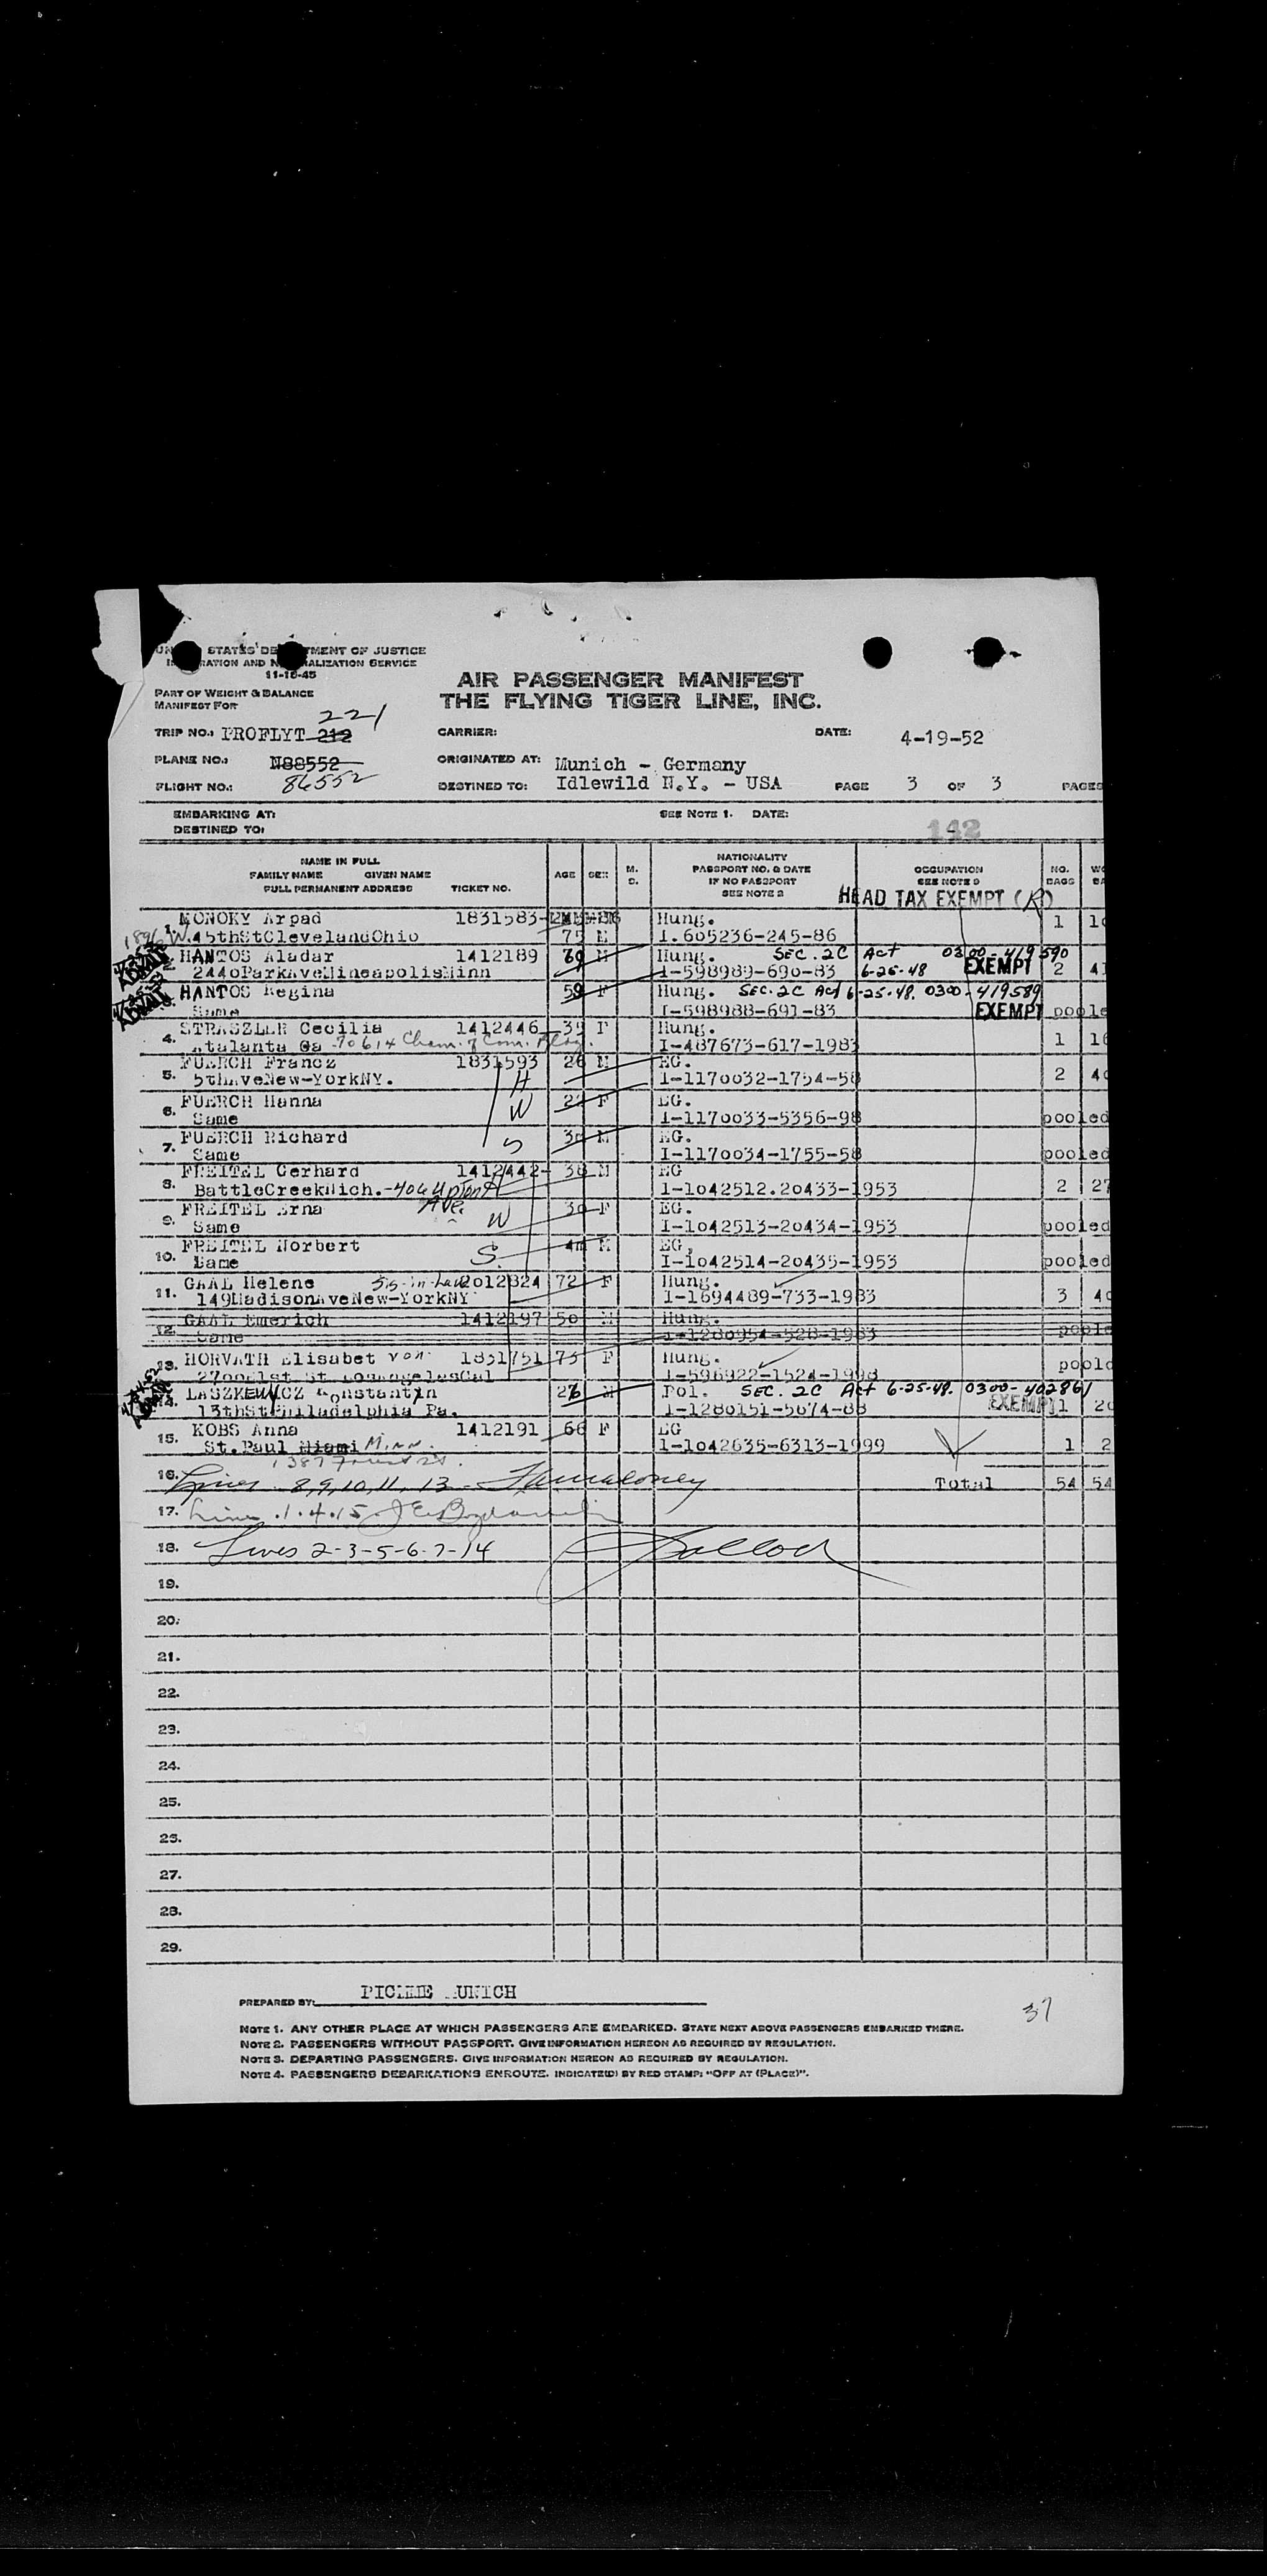 STATES DEPARTMENT OF JUSTICE
AND NATURALIZATION SERVICE
11-18-45
PART OF WEIGHT & BALANCE
MANIFEST FOR
AIR PASSENGER MANIFEST
THE FLYING TIGER LINE, INC.
221
TRIP NO.: PROFLYT 212
CARRIER:
DATE: 4-19-52
PLANE NO.: N88552
ORIGINATED AT: Munich - Germany
FLIGHT NO.: 86552
DESTINED TO: Idlewild N.Y. - USA
PAGE 3 OF 3 PAGES
EMBARKING AT:
SEE NOTE 1. DATE:
DESTINED TO:
142
NAME IN FULL
FAMILY NAME GIVEN NAME
FULL PERMANENT ADDRESS TICKET NO.
AGE SEX
NATIONALITY
PASSPORT NO. & DATE
IF NO PASSPORT
SEE NOTE 2
OCCUPATION
SEE NOTE 3
NO. BAGS
HEAD TAX EXEMPT (R)
MONOKY Arpad 1831583 Hung. 1
1896 W. 45thStClevelandOhio 75 M I.605236-245-86
2. HANTOS Aladar 1412189 69 M Hung. SEC. 2C Act 0300-419590
244oParkAveMineapolisMinn I-598989-690-83 6-25-48 EXEMPT 2
HANTOS Regina 59 F Hung. SEC. 2C Act 6-25-48. 0300-419589
Same I-598988-691-83 EXEMPT
4. STRASZLER Cecilia 1412446 35 F Hung.
Atalanta Ga -70614 Cham. of Com. Bldg. I-487673-617-1983 1
5. FUERCH Francz 1831593 26 M EG.
5thAveNew-YorkNY. H I-1170032-1754-58 2
6. FUERCH Hanna F EG.
Same W I-1170033-5356-98 pooled
7. FUERCH Richard M EG.
Same S I-1170034-1755-58 pooled
8. FREITEL Gerhard 1412442 38 M EG
BattleCreekMich.-406 Upton Ave H I-1042512.20433-1953 2 27
9. FREITEL Erna F EG.
Same W I-1042513-20434-1953 pooled
10. FREITEL Norbert M EG.
Same S. I-1042514-20435-1953 pooled
11. GAAL Helene Sis-in-law 2012824 72 F Hung.
149MadisonAveNew-YorkNY I-1694489-733-1983 3
12. GAAL Emerich 1412197 50 M Hung.
Same I-1280954-528-1983
13. HORVATH Elisabet von 1831751 73 F Hung.
I-596922-1524-1998
14. LASZKEWICZ Konstantyn 26 M Pol. SEC. 2C Act 6-25-48. 0300-402861
13thStPhiladelphia Pa. I-1280151-5674-88 EXEMPT 1
15. KOBS Anna 1412191 66 F EG
St.Paul Miami Minn. I-1042635-6313-1999 1 2
16. Lines 8,9,10,11, 13 Total 54 54
17. Lines .1.4.15
18. Lines 2-3-5-6-7-14
19.
20.
21.
22.
23.
24.
25.
26.
27.
28.
29.
PREPARED BY:
37
NOTE 1. ANY OTHER PLACE AT WHICH PASSENGERS ARE EMBARKED. STATE NEXT ABOVE PASSENGERS EMBARKED THERE.
NOTE 2. PASSENGERS WITHOUT PASSPORT. GIVE INFORMATION HEREON AS REQUIRED BY REGULATION.
NOTE 3. DEPARTING PASSENGERS. GIVE INFORMATION HEREON AS REQUIRED BY REGULATION.
NOTE 4. PASSENGERS DEBARKATIONS ENROUTE. INDICATE(D) BY RED STAMP: "OFF AT (PLACE)".